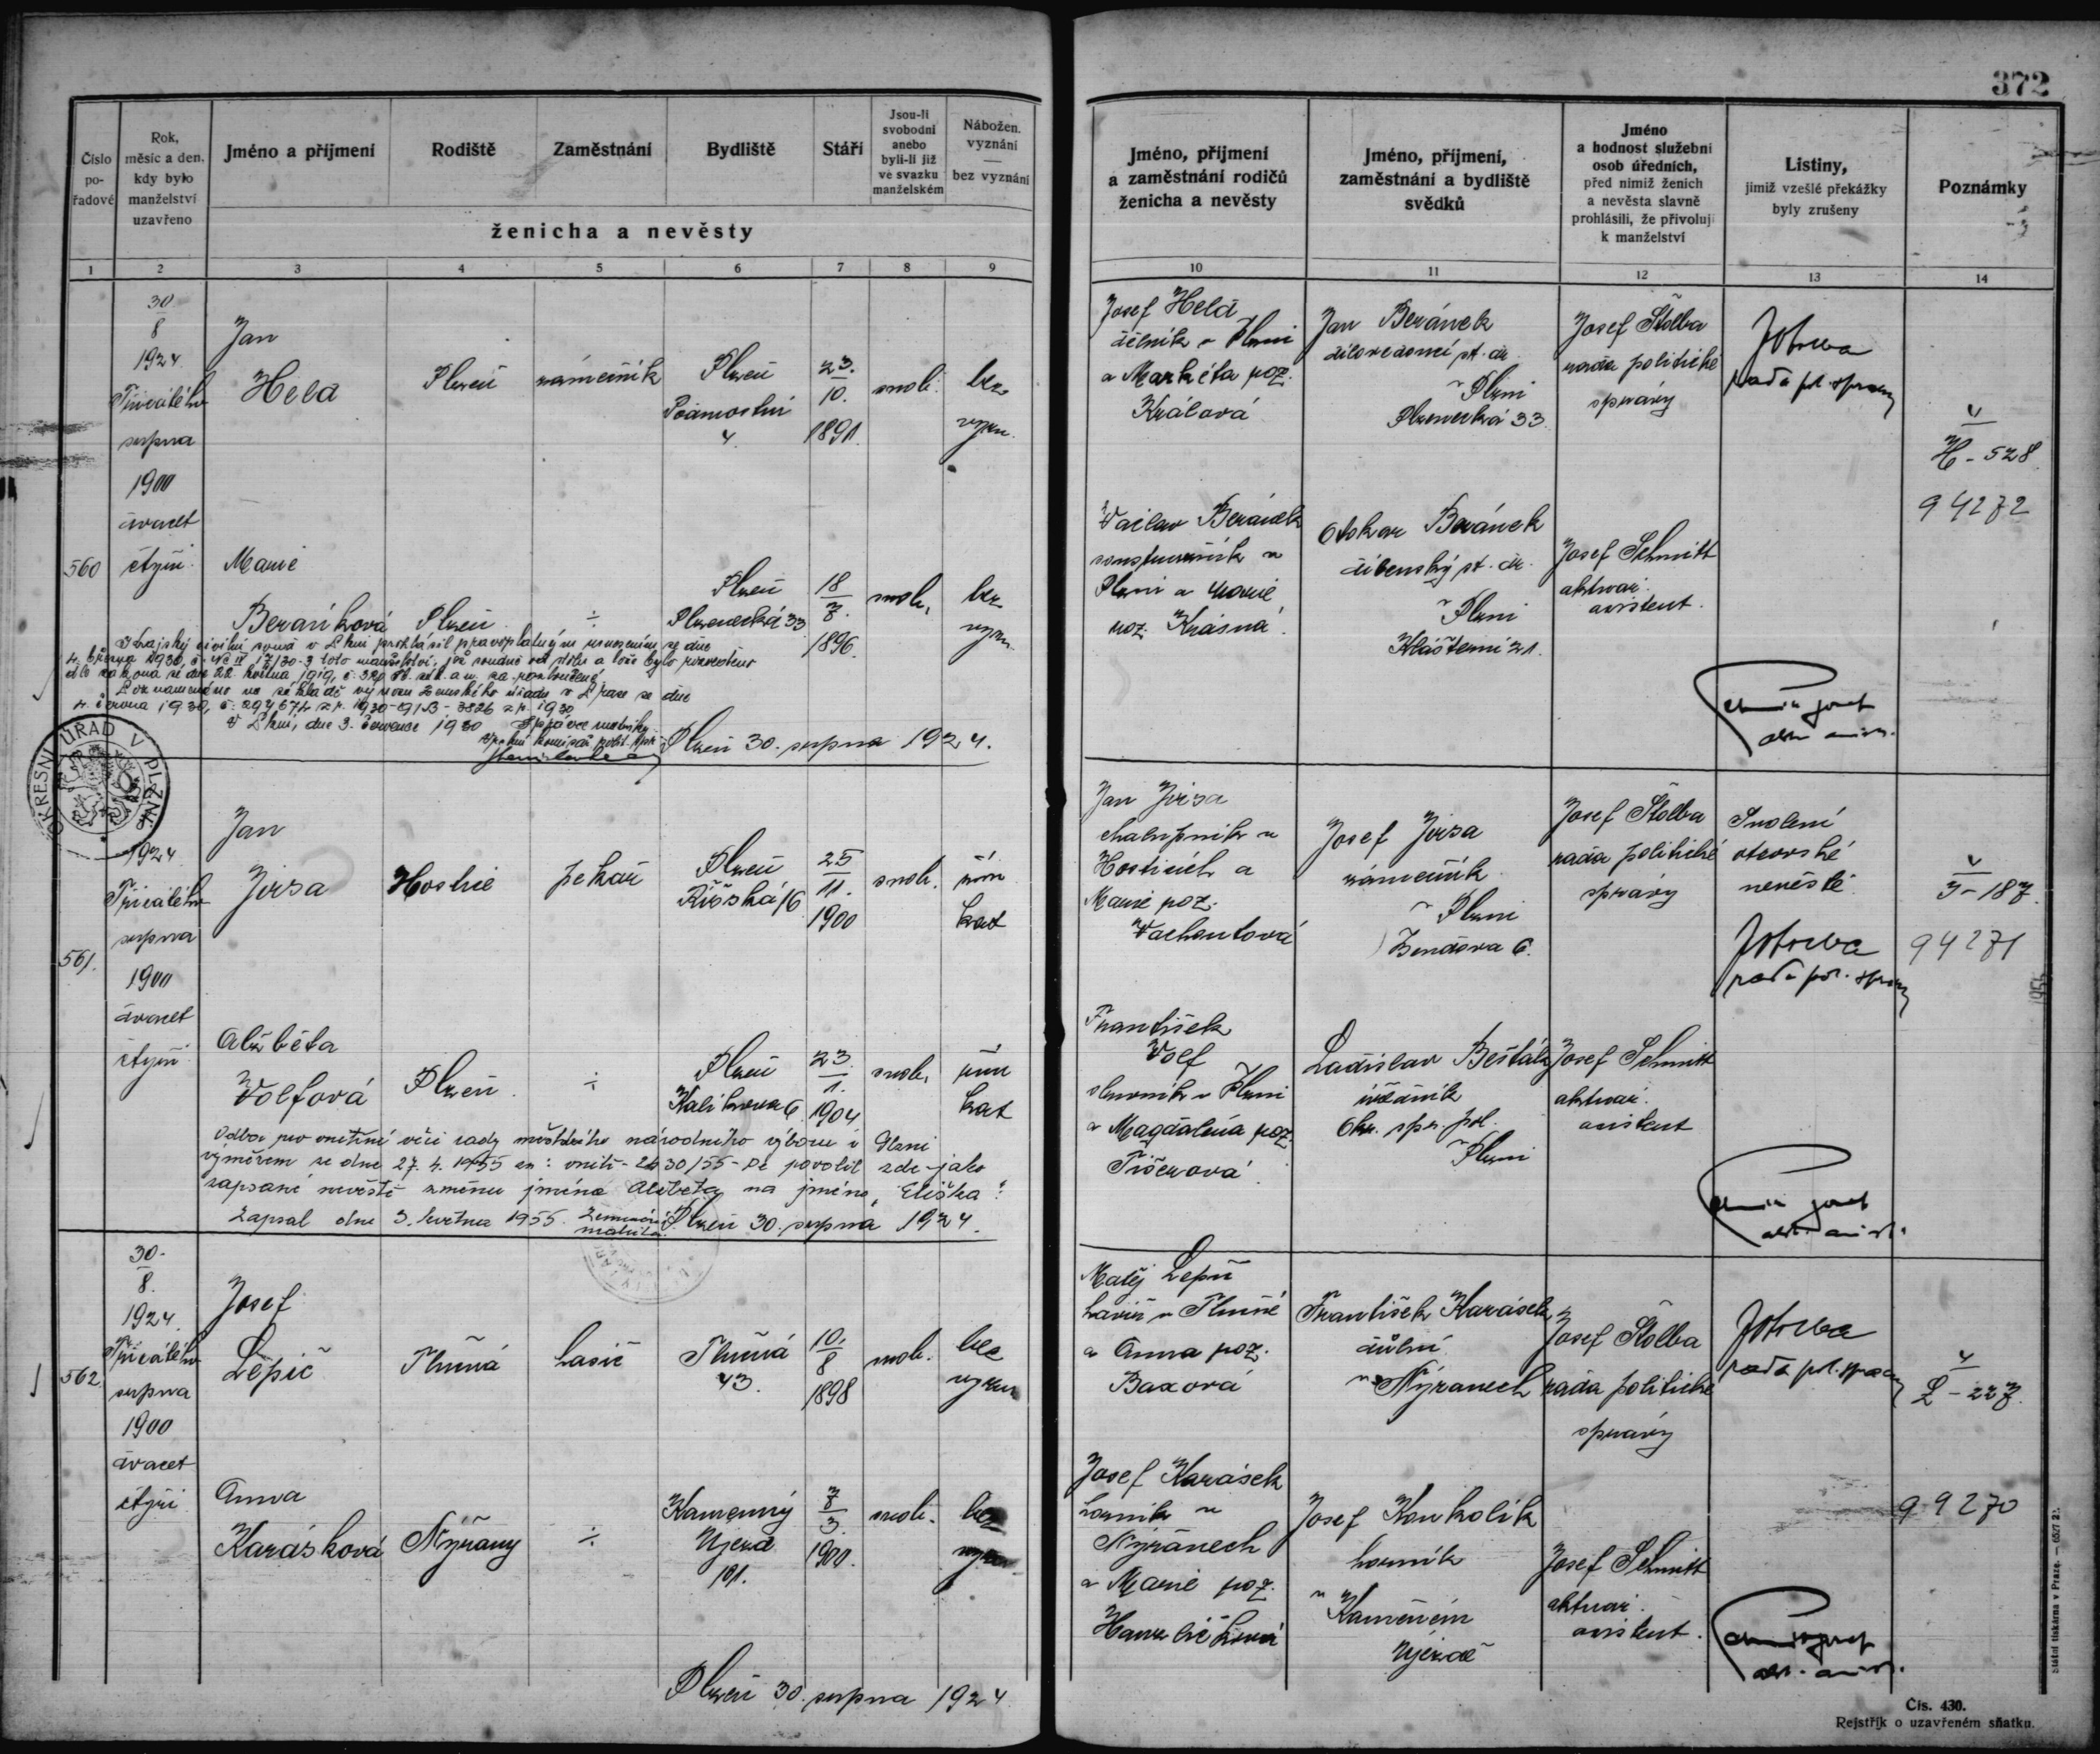 372
Číslo pořadové
Rok, měsíc a den, kdy bylo manželství uzavřeno
Jméno a příjmení
Rodiště
Zaměstnání
Bydliště
Stáří
Jsou-li svobodni anebo byli-li již ve svazku manželském
Nábožen. vyznání — bez vyznání
ženicha a nevěsty
Jméno, příjmení a zaměstnání rodičů ženicha a nevěsty
Jméno, příjmení, zaměstnání a bydliště svědků
Jméno a hodnost služební osob úředních, před nimiž ženich a nevěsta slavně prohlásili, že přivolují k manželství
Listiny, jimiž vzešlé překážky byly zrušeny
Poznámky
1 2 3 4 5 6 7 8 9 10 11 12 13 14
560
30
8
1924
Třicátého
srpna
1900
dvacet
čtyři
Jan
Held
Plzeň
zámečník
Plzeň
4
23.
10.
1891.
svob.
bez
vyzn.
Josef Held
dělník v Plzni
a Markéta roz.
Králová
Jan Beránek
dílovedoucí st. dr.
v Plzni
Plzenecká 33
Josef Štolba
rada politické
správy
rada pol. správy
H - 528
94272
Marie
Beránková
Plzeň
÷
Plzeň
Plzenecká 33
18
7.
1896.
svob.
bez
vyzn.
Václav Beránek
soustružník v
Plzni a Marie
roz. Krásná
Otokar Beránek
dílenský st. dr.
v Plzni
Klášterní 21.
Josef Schmitt
aktuar.
assistent.
Krajský civilní soud v Plzni prohlásil pravoplatným usnesením ze dne
4. března 1930, č. Nc II 17/30-3 toto manželství, jež soudně od stolu a lože bylo rozvedeno
dle zákona ze dne 22. května 1919, č. 320 sb. z. a n. za rozloučené.
Poznamenáno na základě výnosu Zemského úřadu v Praze ze dne
4. června 1930,
V Plzni, dne 3. července 1930 Správce matriky
Plzeň 30. srpna 1924.
OKRESNÍ ÚŘAD V PLZNI
561.
1924
Třicátého
srpna
1900
dvacet
čtyři
Jan
Jirsa
Hostice
pekař
Plzeň
Říšská 16
25
11.
1900
svob.
řím
kat
Jan Jirsa
chalupník v
Hosticích a
Marie roz.
Vachoutová
Josef Jirsa
zámečník
v Plzni
Žendova 6.
Josef Štolba
rada politické
správy
Svolení
otcovské
nevěstě
rada pol. správy
J - 187.
94271
Alžběta
Volfová
Plzeň
÷
Plzeň
Kalikova 6
23
1.
1904
svob.
řím
kat
František
Volf
slevník v Plzni
a Magdaléna roz.
Tišerová
Ladislav Bešťák
úředník
okr. spr. pol.
v Plzni
Josef Schmitt
aktuar.
assistent
Odbor pro vnitřní věci rady městského národního výboru v Plzni
výměrem ze dne 27. 4. 1955 zn: vnitř - 2430/55 - Dč povolil zde jako
zapsané nevěstě změnu jména Alžběta na jméno "Eliška".
Zapsal dne 3. května 1955.
Plzeň 30. srpna 1924.
562.
30.
8.
1924.
Třicátého
srpna
1900
dvacet
čtyři
Josef
Lepič
Tlučná
havíř
Tlučná
43.
10.
8
1898
svob.
bez
vyzn
Matěj Lepič
havíř v Tlučné
a Anna roz.
Baxová
František Karásek
důlní
v Nýřanech
Josef Štolba
rada politické
správy
rada pol. správy
L - 227.
99270
Anna
Karásková
Nýřany
÷
Kamenný
Újezd
101.
7
3.
1900.
svob.
bez
vyzn
Josef Karásek
horník v
Nýřanech
a Marie roz.
Josef Koukolík
horník
v Kamenném
Újezdě
Josef Schmitt
aktuar.
assistent.
Plzeň 30. srpna 1924
Státní tiskárna v Praze.
Čís. 430.
Rejstřík o uzavřeném sňatku.